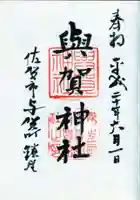 奉拝 平成二十年六月一日
與賀神社
佐賀市与賀鎮座